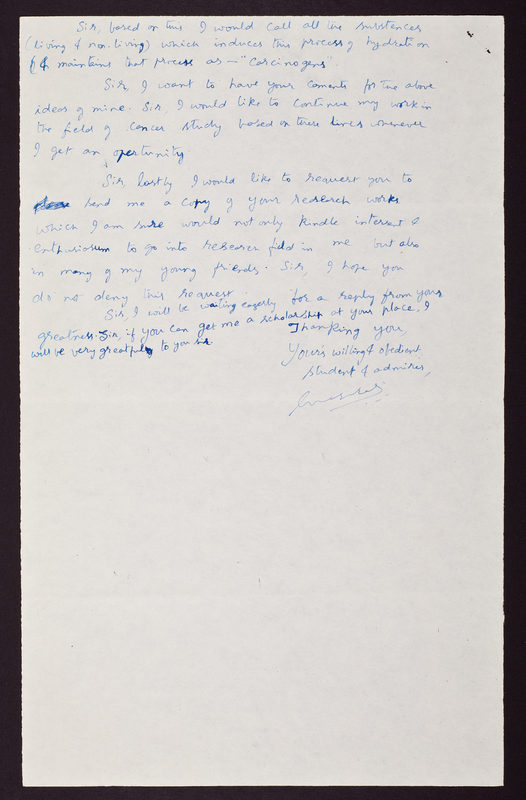 Sir, based on this I would call all the substences
(living & non-living) which induces this process of hydration
& maintains that process as — "Carcinogens".
Sir, I want to have your coments for the above
ideas of mine. Sir, I would like to continue my work in
the field of cancer study based on these lines whenever
I get an opertunity.
Sir, lastly I would like to request you to
send me a copy of your research works
which I am sure would not only kindle interest &
enthusiasum to go into research field in me but also
in many of my young friends. Sir, I hope you
do not deny this request.
Sir, I will be waiting eagerly for a reply from your
greatness. Sir, if you can get me a scholarship at your place, I
will be very greatful to you sir.
Thanking you,
Your's willing & obedient
student & admirer,